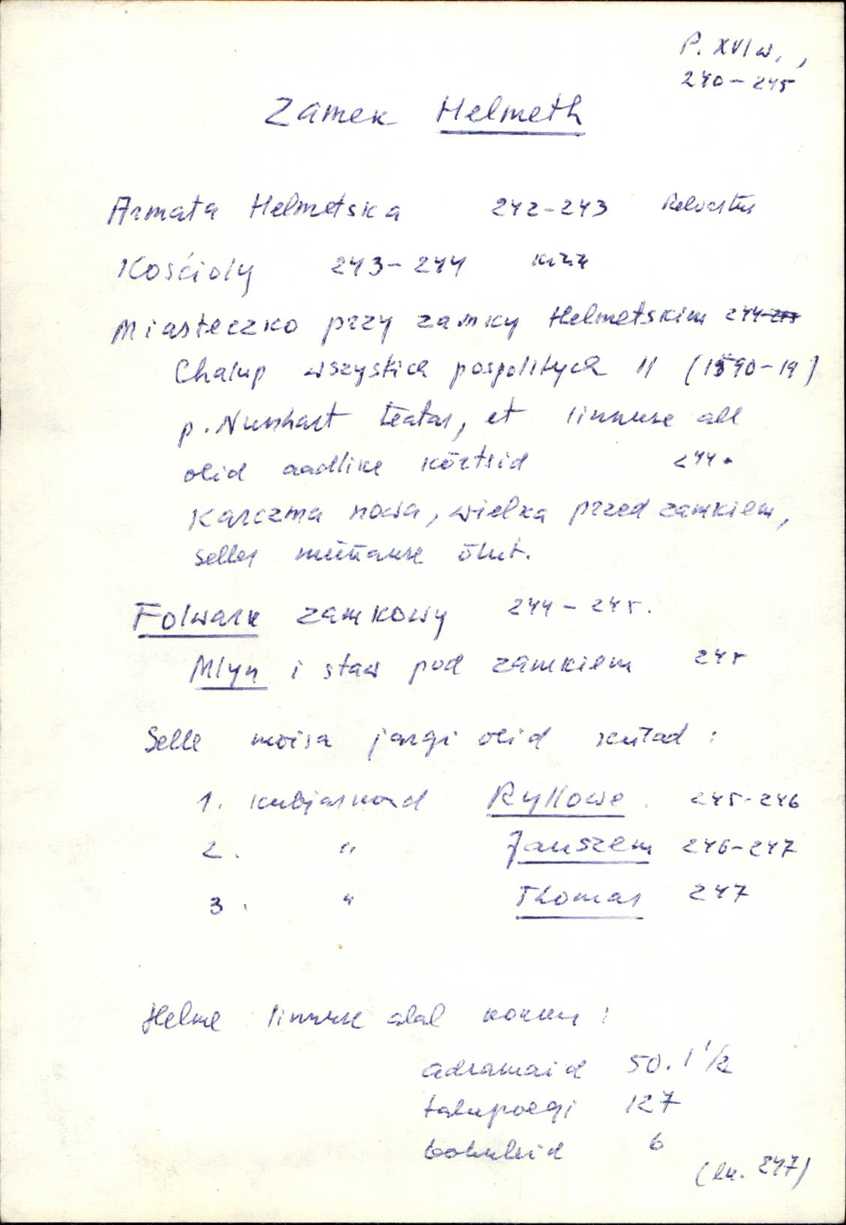 P. XVI w.,
240-245
Zamek Helmeth
Armata Helmetska 242-243 Relvastus
Kościoły 243-244
Miasteczko przy zamky Helmetskim 244
Chalup wszystkich pospolitych 11 (1590-19)
p. Nunhart teatas, et linnuse all
olid aadlike kõrtsid 244.
Karczma nowa, wielka przed zamkiem,
selles müüakse õlut.
Folwark zamkowy 244-245.
Mlyn i staw pod zamkiem 245
Selle moisa järgi olid külad:
1. kubjaskond Ryllowe. 245-246
2. " Jauszem 246-247
3. " Thomas 247
Helme linnuse alal kokku:
adramaid 50. 1 1/2
talupoegi 127
bobulkid 6
(lk. 247)